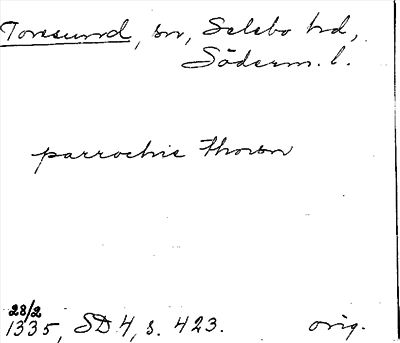 Toresund, sn, Selebo hd,
Söderm. l.
parrochie Thorsn
28/2
1335, SD 4, s. 423. orig.